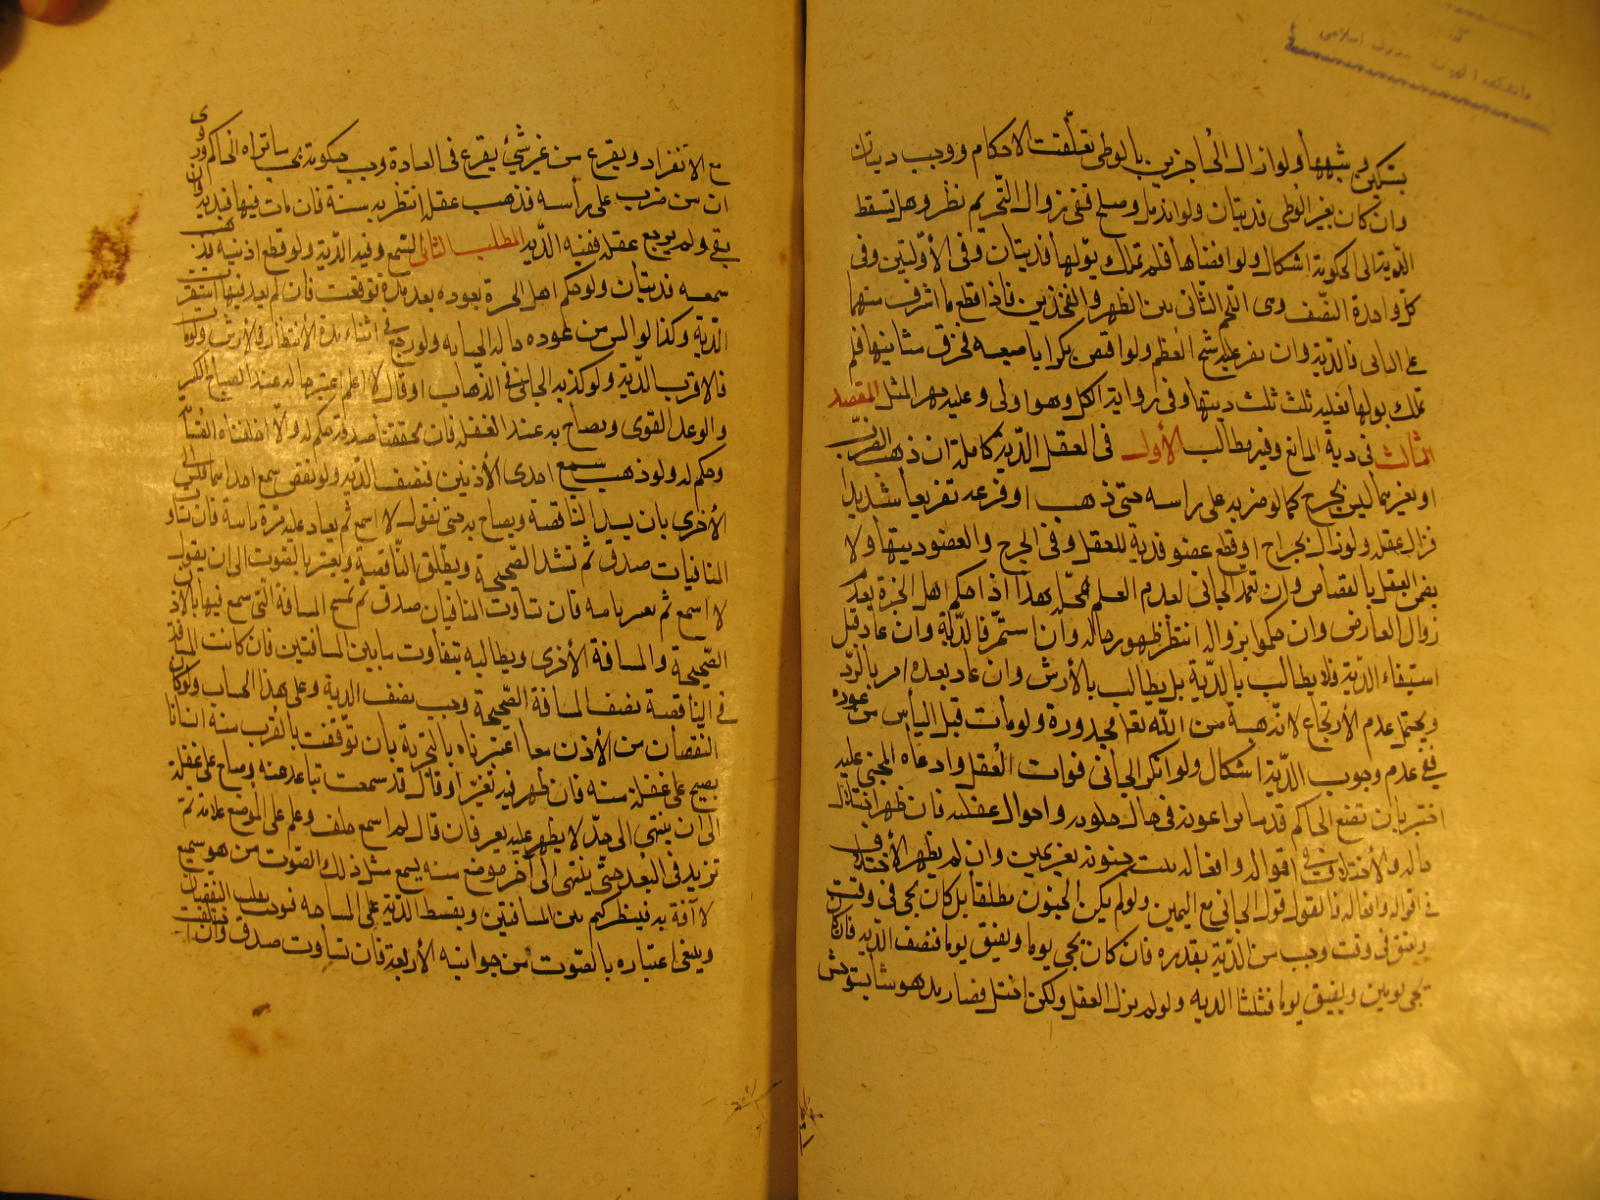 بسكين وشبهها ولو ازال الحاجزين بالوطى تعلقت الاحكام ووجب ديتان
وان كان بغير الوطى فديتان ولو اندمل وصلح ففى زوال التحريم نظر وهل تسقط
الدية الى الحكومة اشكال ولو افضاها فلم تملك بولها فديتان وفى الأوليتين وفى
كل واحدة النصف وهى اللحم الثانى بين الظهر والفخذين فاذا قطع ما اشرف منهما
على البانى فالدية وان لم يقرع عظم ولو افتض بكرا باصبعه فخرق مثانتها فلم
تملك بولها فعليه ثلث ديتها وفى رواية الكل وهو اولى وعليه مهر المثل المقصد
الثالث فى دية المنافع وفيه مطالب الأول فى العقل الدية كاملة ان ذهب بالضرب
او بغيره مما ليس بجرح كما لو ضربه على راسه حتى ذهب او فزعه تفزيعا شديدا
فزال عقله ولو زال بجراح او قطع عضو فدية للعقل وفى الجرح والعضو ديتها ولا
يضمن العقل بالقصاص وان تعمد الجانى لعدم العلم بمحله هذا اذا حكم اهل الخبرة بعدم
زوال العارض وان حكموا بزواله انتظر ظهور حاله وان استمر فالدية وان عاد قبل
استيفاء الدية فلا يطالب بالدية بل يطالب بالأرش وان عاد بعده امر بالرد
ويحتمل عدم الارتجاع لانه هبة من الله تعا مجدورة ولو مات قبل اليأس من عوده
ففى عدم وجوب الدية اشكال ولو انكر الجانى فوات العقل وادعاه المجنى عليه
اختبر بان تقنع الحاكم قدما يراعونه فى حال خلوته واحوال غفلته فان ظهر اختلال
حاله والاختلاف فى اقواله وافعاله ثبت جنونه بغير يمين وان لم يظهر الأختلاف
فى اقواله وافعاله فالقول قول الجانى مع اليمين ولو لم يكن الجنون مطلقا بل كان يجى فى وقت
ويفيق فى وقت وجب من الدية بقدره فان كان يجى يوما ويفيق يوما فنصف الدية فان كان
يجى يومين ويفيق يوما فثلثا الديه ولو لم يزل العقل ولكن اختل فصار مدهوشا يستوحش
مع الانفراد ويفزع من غير شئ يفزع فى العادة وجب حكومة بحسب ما تراه الحاكم وروى
ان من ضرب على رأسه فذهب عقله انتظر به سنة فان مات فيها فديه وان
بقى ولم يرجع عقله ففيه الدية المطلب الثانى السمع وفيه الدية ولو قطع اذنيه فذهب
سمعه فديتان ولو حكم اهل الخبرة بعوده بعد مدة توقعت فان لم يعد فيها استقرت
الدية وكذا لو ايس من عوده حالة الجناية ولو رجع فى اثناء مدة الأنتظار فالارش ولو مات
فالاقرب الدية ولو كذبه الجانى فى الذهاب او قال لا اعلم اعتبر حاله عند الصياح المنكر
والوعد القوى ويصاح به عند الغفلة فان تحققنا صدقه حكم له والا احلفناه القسامة
وحكم له ولو ذهب سمع احدى الأذنين فنصف الدية ولو نقص سمع احداهما قيس الى
الأخرى بان يسد الناقصة ويصاح به حتى يقول لا اسمع ثم يعاد عليه مرة ثانية فان تساوت
المسافتان صدق ثم تسد الصحيحة ويطلق الناقصة ويعتبر بالصوت الى ان يقول
لا اسمع ثم يعتبر ثانية فان تساوت المسافتان صدق ثم تمسح المسافة التى سمع فيها بالأذن
الصحيحة والمسافة الأخرى ويطالبه بتفاوت ما بين المسافتين فان كانت المسافة
فى الناقصة نصف المسافة الصحيحة وجب نصف الدية وعلى هذا الحساب ولو كان
النقصان من الأذن معا اعتبرناه بالتجربة بان توقفت بالقرب منه انسانا
يصيح على غفلة منه فان ظهر فيه تغيرا وقال قد سمعت تباعد عنه وصاح على غفلة
الى ان ينتهى الى حد لا يظهر عليه تغير فان قال لم اسمع حلف وعلم على الموضع علامة ثم
تزيد فى البعد حتى ينتهى الى آخر موضع منه يسمع مثل ذلك الصوت من هو سميع
لا آفة به فينظر كم بين المسافتين ويقسط الدية على المساحة فيوجب بقدر النقصان
وينبغى اعتباره بالصوت من جوانبه الأربعة فان تساوت صدق وان اختلفت